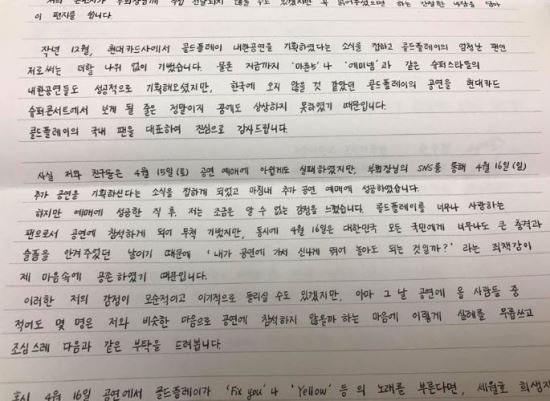 이 편지를 씁니다.
작년 12월, 현대카드사에서 콜드플레이 내한공연을 기획하였다는 소식을 접하고 콜드플레이의 엄청난 팬인
저로써는 더할 나위 없이 기뻤습니다. 물론 지금까지 '마룬5'나 '에미넴'과 같은 슈퍼스타들의
내한공연들도 성공적으로 기획해오셨지만, 한국에 오지 않을 것 같았던 콜드플레이의 공연을 현대카드
슈퍼콘서트에서 보게 될 줄은 정말이지 꿈에도 상상하지 못하였기 때문입니다.
콜드플레이의 국내 팬을 대표하여 진심으로 감사드립니다.
사실 저와 친구들은 4월 15일(토) 공연 예매에 아쉽게도 실패하였지만, 부회장님의 SNS를 통해 4월 16일(일)
추가 공연을 기획하신다는 소식을 접하게 되었고 마침내 추가 공연 예매에 성공하였습니다.
하지만 예매에 성공한 직후, 저는 조금은 알 수 없는 감정을 느꼈습니다. 콜드플레이를 너무나 사랑하는
팬으로서 공연에 참석하게 되어 무척 기뻤지만, 동시에 4월 16일은 대한민국 모든 국민에게 너무나도 큰 충격과
슬픔을 안겨주었던 날이기 때문에 '내가 공연에 가서 신나게 뛰어 놀아도 되는 것일까?' 라는 죄책감이
제 마음속에 공존하였기 때문입니다.
이러한 저의 감정이 모순적이고 이기적으로 들리실 수도 있겠지만, 아마 그 날 공연에 올 사람들 중
적어도 몇 명은 저와 비슷한 마음으로 공연에 참석하지 않을까 하는 마음에 이렇게 실례를 무릅쓰고
조심스레 다음과 같은 부탁을 드려봅니다.
혹시 4월 16일 공연에서 콜드플레이가 'Fix you'나 'Yellow' 등의 노래를 부른다면, 세월호 희생자